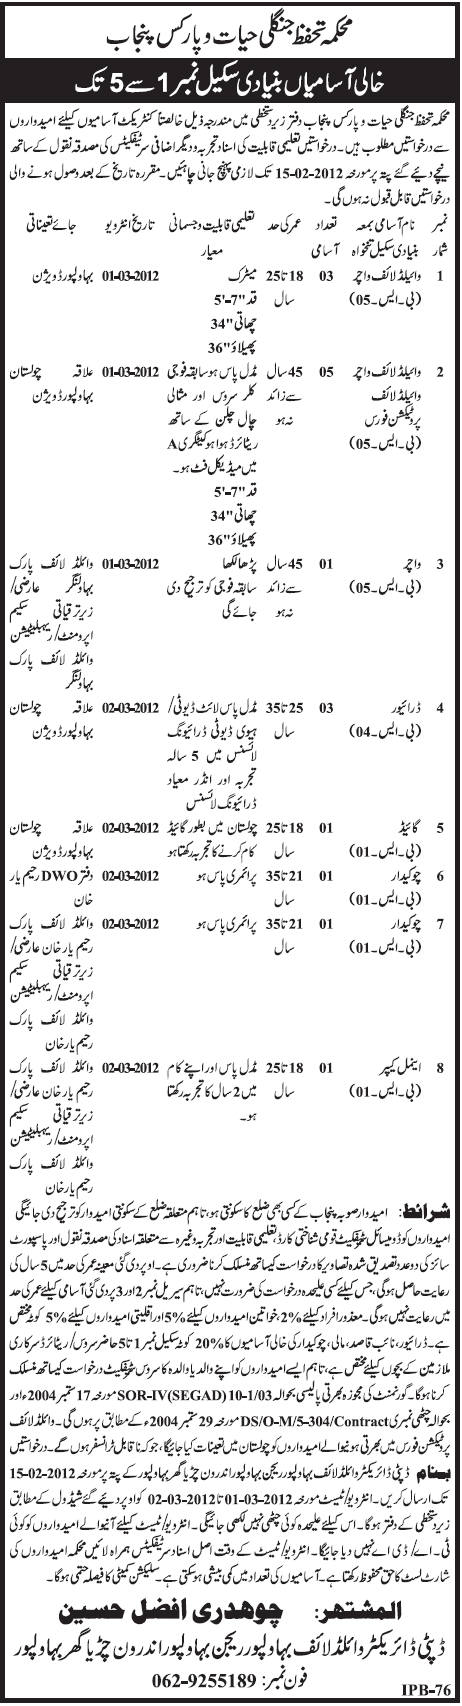 محکمہ تحفظ جنگلی حیات و پارکس پنجاب
خالی آسامیاں بنیادی سکیل نمبر 1 سے 5 تک
محکمہ تحفظ جنگلی حیات و پارکس پنجاب دفتر زیر دستخطی میں مندرجہ ذیل خالصتاً کنٹریکٹ آسامیوں کیلئے امیدواروں
سے درخواستیں مطلوب ہیں۔ درخواستیں تعلیمی قابلیت کی اسناد تجربہ و دیگر اضافی سرٹیفکیٹس کی مصدقہ نقول کے ساتھ
نیچے دیئے گئے پتہ پر مورخہ 2012-02-15 تک لازمی پہنچ جانی چاہئیں۔ مقررہ تاریخ کے بعد وصول ہونے والی
درخواستیں قابل قبول نہ ہوں گی۔
نمبر شمار نام آسامی بمعہ بنیادی سکیل تنخواہ تعداد آسامی عمر کی حد تعلیمی قابلیت و جسمانی معیار تاریخ انٹرویو جائے تعیناتی
1 وائیلڈ لائف واچر (بی۔ایس۔05) 03 18 تا 25 سال میٹرک قد "7-'5 چھاتی "34 پھیلاؤ "36 01-03-2012 بہاولپور ڈویژن
2 وائیلڈ لائف واچر وائیلڈ لائف پروٹیکشن فورس (بی۔ایس۔05) 05 45 سال سے زائد نہ ہو مڈل پاس ہو سابقہ فوجی کلر سروس اور مثالی چال چلن کے ساتھ ریٹائرڈ ہوا ہو کیٹگری A میں میڈیکل فٹ ہو۔ قد "7-'5 چھاتی "34 پھیلاؤ "36 01-03-2012 علاقہ چولستان بہاولپور ڈویژن
3 واچر (بی۔ایس۔05) 01 45 سال سے زائد نہ ہو پڑھا لکھا سابقہ فوجی کو ترجیح دی جائے گی 01-03-2012 وائلڈ لائف پارک بہاولنگر عارضی/ زیر ترقیاتی سکیم اپرومنٹ/ریہبلیٹیشن وائلڈ لائف پارک بہاولنگر
4 ڈرائیور (بی۔ایس۔04) 03 25 تا 35 سال مڈل پاس لائٹ ڈیوٹی/ ہیوی ڈیوٹی ڈرائیونگ لائسنس میں 5 سالہ تجربہ اور انڈر معیاد ڈرائیونگ لائسنس 02-03-2012 علاقہ چولستان بہاولپور ڈویژن
5 گائیڈ (بی۔ایس۔01) 01 18 تا 25 سال چولستان میں بطور گائیڈ کام کرنے کا تجربہ رکھتا ہو 02-03-2012 علاقہ چولستان بہاولپور ڈویژن
6 چوکیدار (بی۔ایس۔01) 01 21 تا 35 سال پرائمری پاس ہو 02-03-2012 دفتر DWO رحیم یار خان
7 چوکیدار (بی۔ایس۔01) 01 21 تا 35 سال پرائمری پاس ہو 02-03-2012 وائلڈ لائف پارک رحیم یار خان عارضی/ زیر ترقیاتی سکیم اپرومنٹ/ریہبلیٹیشن وائلڈ لائف پارک رحیم یار خان
8 اینمل کیپر (بی۔ایس۔01) 01 18 تا 25 سال مڈل پاس اور اپنے کام میں 2 سال کا تجربہ رکھتا ہو۔ 02-03-2012 وائلڈ لائف پارک رحیم یار خان عارضی/ زیر ترقیاتی سکیم اپرومنٹ/ریہبلیٹیشن وائلڈ لائف پارک رحیم یار خان
شرائط: امیدوار صوبہ پنجاب کے کسی بھی ضلع کا سکونتی ہو، تاہم متعلقہ ضلع کے سکونتی امیدوار کو ترجیح دی جائیگی
امیدواروں کو ڈومیسائل سرٹیفکیٹ قومی شناختی کارڈ، تعلیمی قابلیت اور تجربہ وغیرہ سے متعلقہ اسناد کی مصدقہ نقول اور پاسپورٹ
سائز کی دو عدد تصدیق شدہ تصاویر کا درخواست کیساتھ منسلک کرنا ضروری ہے۔ اوپر دی گئی معینہ عمر کی حد میں 5 سال کی
رعایت حاصل ہوگی، جس کیلئے کسی علیحدہ درخواست کی ضرورت نہیں، تاہم سیریل نمبر 2 اور 3 پر دی گئی آسامی کیلئے عمر کی حد
میں رعایت نہیں ہوگی۔ معذور افراد کیلئے 2%، خواتین امیدواروں کیلئے 5% اور اقلیتی امیدواروں کیلئے 5% کوٹہ مختص
ہے۔ ڈرائیور، نائب قاصد، مالی، چوکیدار کی خالی آسامیوں کا 20% کوٹہ سکیل نمبر 1 تا 5 حاضر سروس/ریٹائرڈ سرکاری
ملازمین کے بچوں کیلئے مختص ہے، تاہم ایسے امیدواروں کو اپنے والد یا والدہ کا سروس سرٹیفکیٹ درخواست کیساتھ منسلک
کرنا ہوگا۔ گورنمنٹ کی مجوزہ بھرتی پالیسی بحوالہ SOR-IV(SEGAD) 10-1/03 مورخہ 17 ستمبر 2004ء اور
بحوالہ چٹھی نمبری DS/O-M/5-304/Contract مورخہ 29 ستمبر 2004ء کے مطابق پر ہوں گی۔ وائلڈ لائف
پروٹیکشن فورس میں بھرتی ہونیوالے امیدواروں کو چولستان میں تعینات کیا جائیگا، جو کہ ناقابل ٹرانسفر ہوں گے۔ درخواستیں
بنام ڈپٹی ڈائریکٹر وائلڈ لائف بہاولپور ریجن بہاولپور اندرون چڑیا گھر بہاولپور کے پتہ پر مورخہ 2012-02-15
تک ارسال کریں۔ انٹرویو/ٹیسٹ مورخہ 2012-03-01 تا 2012-03-02 کو اوپر دیئے گئے شیڈول کے مطابق
زیر دستخطی کے دفتر ہوگا۔ اس کیلئے علیحدہ کوئی چٹھی نہیں لکھی جائیگی۔ انٹرویو/ٹیسٹ کیلئے آنیوالے امیدواروں کو کوئی
ٹی۔اے/ڈی اے نہیں دیا جائیگا۔ انٹرویو/ٹیسٹ کے وقت اصل اسناد سرٹیفکیٹس ہمراہ لائیں محکمہ امیدواروں کی
شارٹ لسٹ کا حق محفوظ رکھتا ہے۔ آسامیوں کی تعداد میں کمی بیشی ہوسکتی ہے۔ سلیکشن کمیٹی کا فیصلہ حتمی ہوگا۔
المشتھر: چوہدری افضل حسین
ڈپٹی ڈائریکٹر وائلڈ لائف بہاولپور ریجن بہاولپور اندرون چڑیا گھر بہاولپور
فون نمبر: 062-9255189
IPB-76